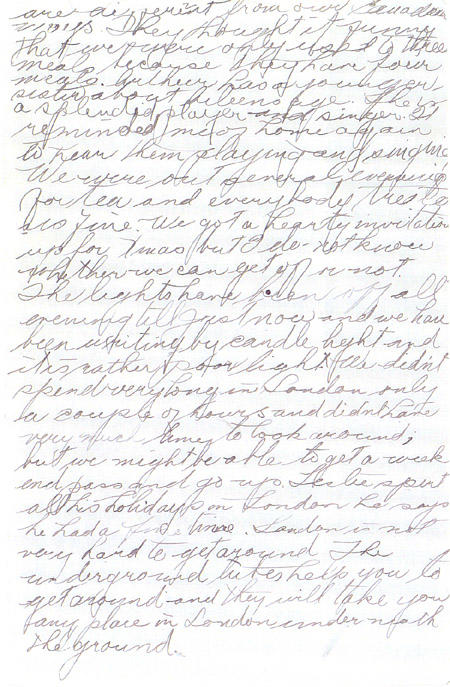 are different from our Canadian
They thought it funny
that we were only used to three
meals because they have four
meals. has a younger
sister about age. She is
a splendid player and singer. It
reminded me of home again
to hear them playing and singing
We were out several evenings
for tea and everybody
us fine. We got a hearty invitation
up for Xmas but I do not know
whether we can get off or not.
The lights have been off all
evening till just now and we have
been writing by candle light and
it is rather poor light. We didn't
spend very long in London only
a couple of hours and didn't have
very much time to look around;
but we might be able to get a week
end pass and go up. Leslie spent
all his holidays in London he says
he had a fine time. London is not
very hard to get around The
underground tubes help you to
get around and they will take you
any place in London underneath
the ground.